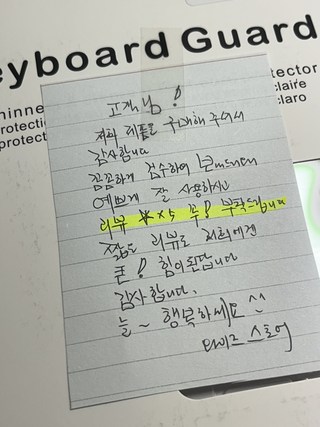 eyboard Guard
hinne
protectio
protect
tector
claire
claro
고객님!
저희 제품을 구매해 주셔서
감사합니다
꼼꼼하게 검수하여 보내드리니
예쁘게 잘 사용하시고
리뷰 ★x5 꾹! 부탁드립니다
짧은 리뷰도 저희에겐
큰! 힘이 된답니다
감사합니다.
늘~ 행복하세요 ^^
스토어